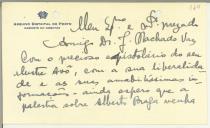 ARQUIVO DISTRITAL DO PORTO
GABINETE DO DIRECTOR
Meu Exmo e prezado
Amigo Dr. J. Machado Vaz
Com o precioso epistolário do seu
ilustre Avô, com a sua liberalida-
de e as suas amabilíssimas in-
formações - ainda espero que a
palestra sobre Alberto Braga venha